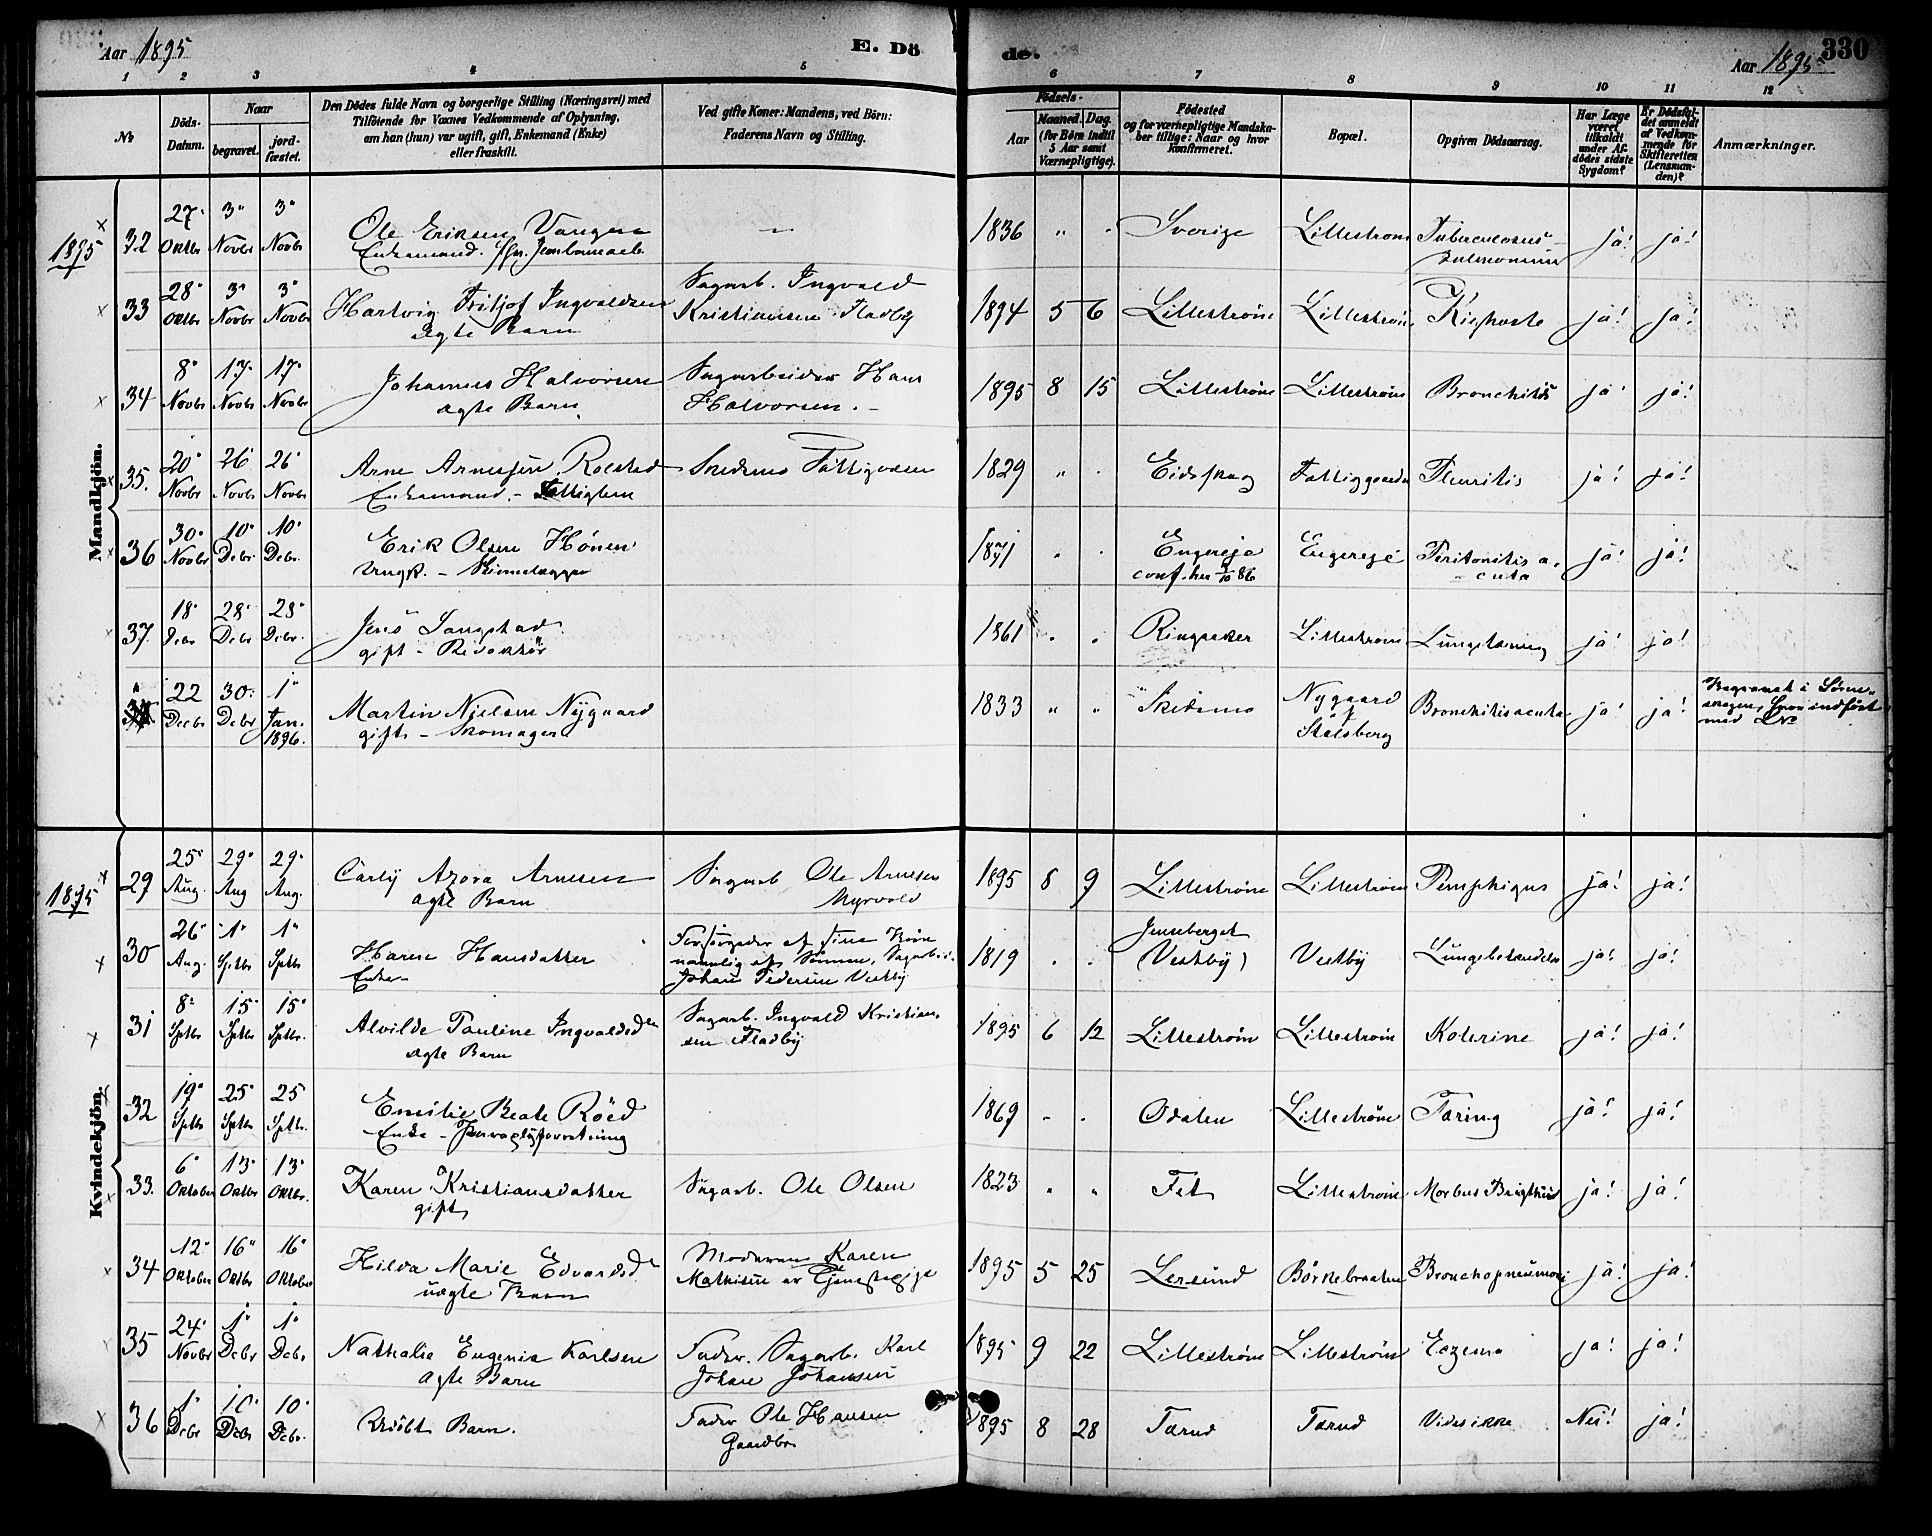 Aar 1895 E. Dö de. Aar 1895 330
1 2 3 4 5 6 7 8 9 10 11 12
№ Döds-Datum. Naar begravet. jordfæstet. Den Dödes fulde Navn og borgerlige Stilling (Næringsvei) med Tilföiende for Voxnes Vedkommende af Oplysning, om han (hun) var ugift, gift, Enkemand (Enke) eller fraskilt. Ved gifte Koner: Mandens, ved Börn: Faderens Navn og Stilling. Födsels- Aar Maaned. Dag. (for Börn indtil 5 Aar samt Værnepligtige). Födested og for værnepligtige Mandskaber tillige: Naar og hvor konfirmeret. Bopæl. Opgiven Dödsaarsag. Har Læge været tilkaldt under Afdödes sidste Sygdom? Er Dödsfaldet anmeldt af Vedkommende for Skifteretten (Lensmanden)? Anmærkninger.
Mandkjön.
1895
32 27. Oktbr 3. Novbr 3. Novbr Ole Eriksen Vangen Enkemand. — 1836 " " Sverige Lillestrøm Tuberculosus pulmonum ja! ja!
33 28. Oktbr 3. Novbr 3. Novbr Hartvig Fritjof Ingvaldsen ægte Barn Sagarb. Ingvald Kristiansen Fladby 1894 5 6 Lillestrøm Lillestrøm Kighoste ja! ja!
34 8. Novbr 17. Novbr 17. Novbr Johannes Halvorsen ægte Barn Sagarbeider Hans Halvorsen. 1895 8 15 Lillestrøm Lillestrøm Bronchitis ja! ja!
35. 20. Novbr 26. Novbr 26. Novbr Arne Arnesen Rolstad Enkemand. - Fattiglem Skedsmo Fattigvæsen 1829 " " Eidskog Fattiggaarden Pleuritis ja! ja!
36 30. Novbr 10. Debr. 10. Debr. Erik Olsen Hönen Ungk. - Skinnelægger 1871 " " Engereja conf. her 86 Engereje Peritonitis acuta ja! ja!
37. 18. Debr 28. Debr 28. Debr. Jens Langstad gift - Redaktör 1861 " " Ringsaker Lillestrøm Lungetæring ja! ja!
22 Decbr 30. Debr 1. Jan. 1896. Martin Nielsen Nygaard gift - Skomager 1833 " " Skedsmo Nygaard Stalsberg Bronchitis acuta ja! ja! Begravet i indfört med №
Kvindekjön.
1895
29 25. Aug. 29. Aug 29. Aug. Carly Azora Arnesen ægte Barn Sagarb Ole Arnesen Myrvold 1895 8 9 Lillestrøm Lillestrøm Pemphigus ja! ja!
30 26. Aug. 1. Sptbr 1. Sptbr Maren Hansdatter Enke Forsörgedes af sine Börn navnlig af Sönnen, Sagarbeid. Johan Pedersen Vestby 1819 " " (Vestby) Vestby Lungebetændelse ja! ja!
31 8. Sptbr 15. Sptbr 15. Sptbr. Alvilde Pauline Ingvaldsd. ægte Barn Sagarb. Ingvald Kristiansen Fladby 1895 6 12 Lillestrøm Lillestrøm Kolerine ja! ja!
32 19. Sptbr 25. Sptbr 25 Sptbr. Emilie Beate Röed Enke - 1869 " " Odalen Lillestrøm Tæring ja! ja!
33. 6. Oktober 13. Oktbr 13. Oktbr. Karen Kristiansdatter gift Sagarb. Ole Olsen 1823 " " Fet Lillestrøm Morbus Brigthii ja! ja!
34 12. Oktober 16. Oktbr 16. Oktober Hilda Marie Edvardsd. uægte Barn Moderen Karen Mathisen er Tjenestepige 1895 5 25 Lersund Börkebraaten Bronchopneumoni ja! ja!
35 24. Novbr 1. Debr 1. Debr Nathalia Eugenia Karlsen ægte Barn Fader. Sagarb. Karl Johan Johansen 1895 9 22 Lillestrøm Lillestrøm Eczema ja! ja!
36 1. Debr 10. Debr 10. Debr. Udöbt Barn. Fader Ole Hansen Gaardbr. 1895 8 28 Tærud Tærud Vides ikke Nei! ja!